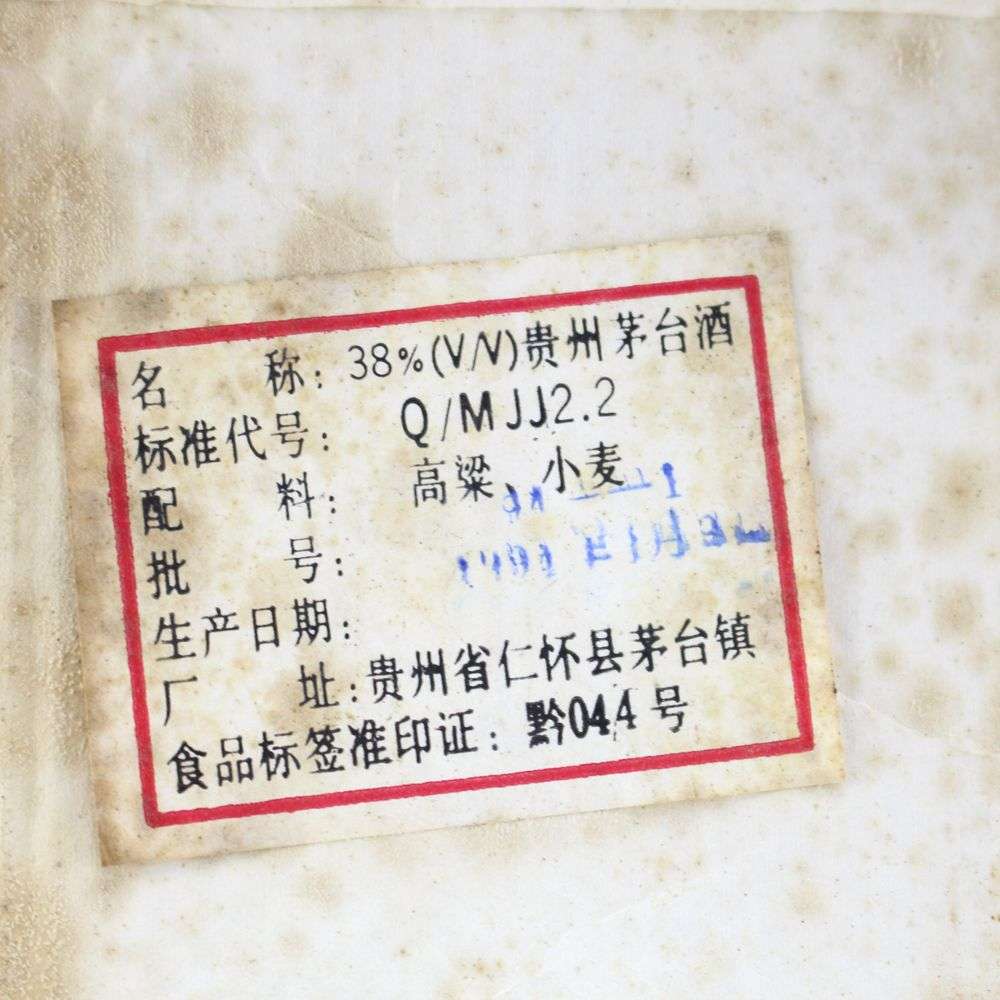 名称：38%(V/V)贵州茅台酒
标准代号：Q/MJJ2.2
配料：高粱、小麦
批号：
生产日期：
厂址：贵州省仁怀县茅台镇
食品标签准印证：黔044号